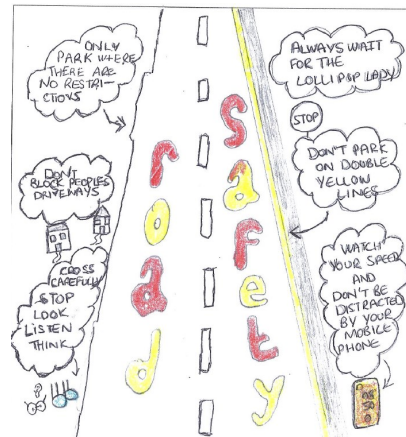 ONLY
PARK WHERE
THERE ARE
NO RESTRI-
CTIONS
DONT
BLOCK PEOPLES
DRIVEWAYS
CROSS
CAREFULLY
STOP
LOOK
LISTEN
THINK
?
road
safety
ALWAYS WAIT
FOR THE
LOLLIPOP LADY
STOP
DON'T PARK
ON DOUBLE
YELLOW
LINES
WATCH
YOUR SPEED
AND
DON'T BE
DISTRACTED
BY YOUR
MOBILE
PHONE